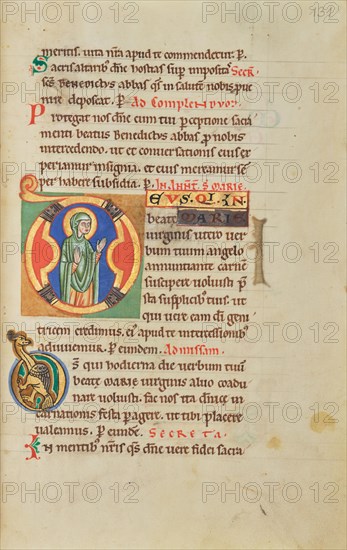 131
meritis. uita nr̄a apud te commendetur. P.
Sacris altarib' dn̄e hostias sup impositas Secr̄.
ses BENEDICTVS abbas qs̄ in salutē nobis p̱ue
nire deposcat. P. Ad Complen̄ uos
Protegat nos dn̄e cum tui p̱ceptione sacra
menti beatus Benedictus abbas p̱ro nobis
intercedendo. ut et conuersationis eius ex
periamur insignia. et eius mereamur sē
per habere subsidia. P. IN ANNT̄. S̄. MARIE.
EVS. QI. IN
beatę MARIE
uirginis utero uer
bum tuum angelo
annuntiante carnē
suscipere uoluisti. p̱
sta supplicib' tuis. ut
qui uere eam dī geni
tricem credimus. ei' apud te intercessionib'
adiuuemur. P. eundem. Ad missam.
DS qui hodierna die uerbum tuū
beatę MARIE uirginis aluo coadu
nare uoluisti. fac nos ita dn̄icę in
carnationis festa p̱agere. ut tibi placere
ualeamus. P. eunde. SECRETA.
IN mentib' nr̄is qs̄ dn̄e uere fidei sacra